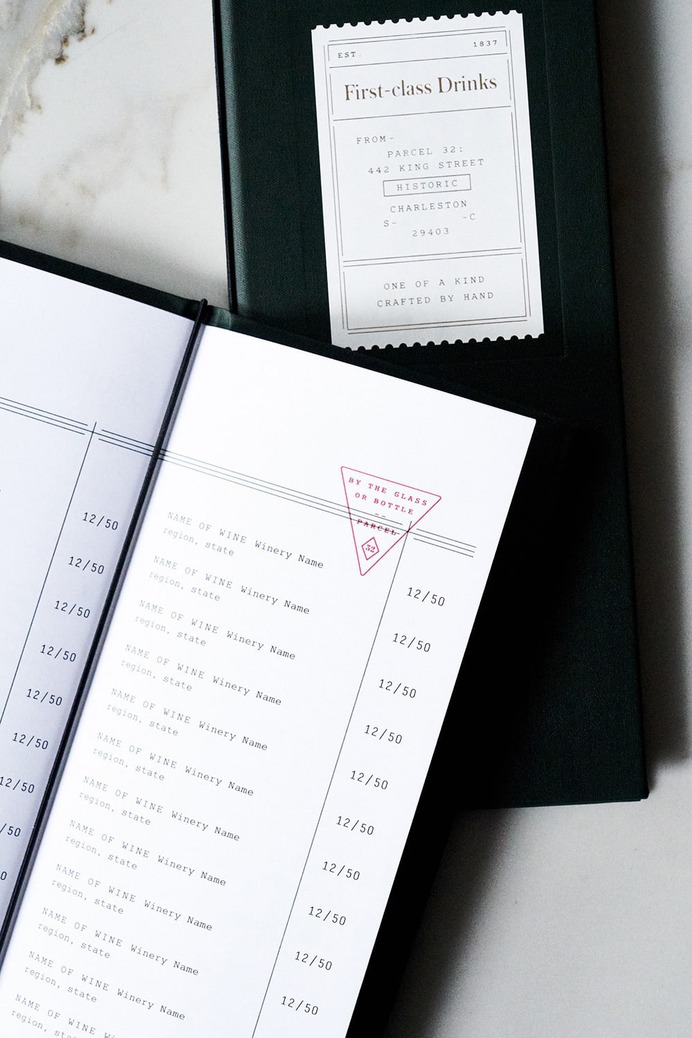 EST. 1837
First-class Drinks
FROM-
PARCEL 32:
442 KING STREET
HISTORIC
CHARLESTON
S- -C
29403
ONE OF A KIND
CRAFTED BY HAND
12/50
12/50
12/50
12/50
12/50
12/50
12/50
/50
0
BY THE GLASS
OR BOTTLE
--
PARCEL
32
NAME OF WINE Winery Name 12/50
region, state
NAME OF WINE Winery Name 12/50
region, state
NAME OF WINE Winery Name 12/50
region, state
NAME OF WINE Winery Name 12/50
region, state
NAME OF WINE Winery Name 12/50
region, state
NAME OF WINE Winery Name 12/50
region, state
NAME OF WINE Winery Name 12/50
region, state
NAME OF WINE Winery Name 12/50
region, state
NAME OF WINE Winery Name 12/50
region, state
NAME OF WINE Winery Name 12/50
region, state
NAME OF WINE Winery Name
region, state
NAME OF WINE
region,